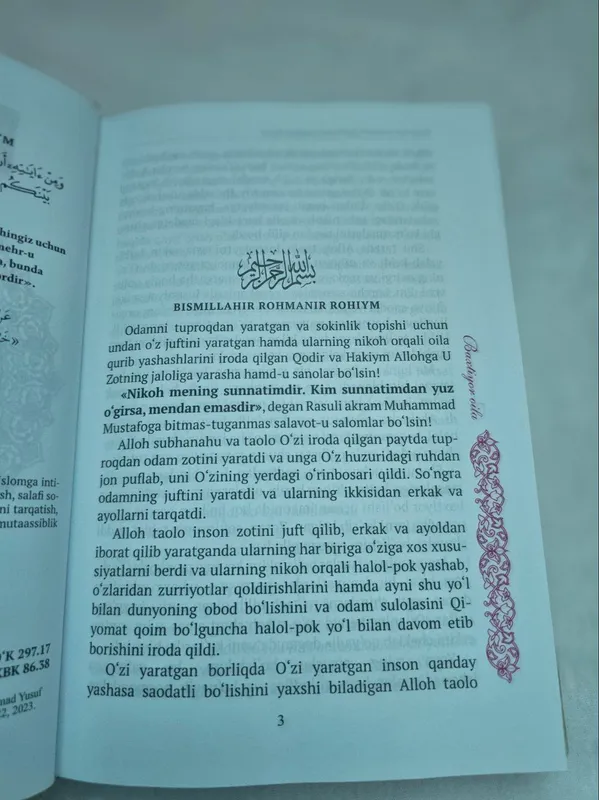 M
وَمِنْ ءَايَٰتِهِۦٓ
بَيْنَكُم
hingiz uchun
mehr-u
a, bunda
rdir».
slomga inti-
sh, salafi so-
ni tarqatish,
mutaassiblik
O‘K 297.17
KBK 86.38
mad Yusuf
22, 2023.
بسم الله الرحمن الرحيم
BISMILLAHIR ROHMANIR ROHIYM
Odamni tuproqdan yaratgan va sokinlik topishi uchun
undan o‘z juftini yaratgan hamda ularning nikoh orqali oila
qurib yashashlarini iroda qilgan Qodir va Hakiym Allohga U
Zotning jaloliga yarasha hamd-u sanolar bo‘lsin!
«Nikoh mening sunnatimdir. Kim sunnatimdan yuz
o‘girsa, mendan emasdir», degan Rasuli akram Muhammad
Mustafoga bitmas-tuganmas salavot-u salomlar bo‘lsin!
Alloh subhanahu va taolo O‘zi iroda qilgan paytda tup-
roqdan odam zotini yaratdi va unga O‘z huzuridagi ruhdan
jon puflab, uni O‘zining yerdagi o‘rinbosari qildi. So‘ngra
odamning juftini yaratdi va ularning ikkisidan erkak va
ayollarni tarqatdi.
Alloh taolo inson zotini juft qilib, erkak va ayoldan
iborat qilib yaratganda ularning har biriga o‘ziga xos xusu-
siyatlarni berdi va ularning nikoh orqali halol-pok yashab,
o‘zlaridan zurriyotlar qoldirishlarini hamda ayni shu yo‘l
bilan dunyoning obod bo‘lishini va odam sulolasini Qi-
yomat qoim bo‘lguncha halol-pok yo‘l bilan davom etib
borishini iroda qildi.
O‘zi yaratgan borliqda O‘zi yaratgan inson qanday
yashasa saodatli bo‘lishini yaxshi biladigan Alloh taolo
3
Baxtiyor oila